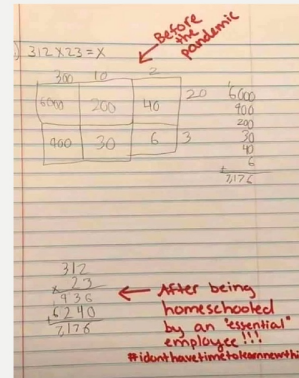 Before
the
pandemic
312 x 23 = x
300 10 2
6000 200 40 20
900 30 6 3
6000
900
200
30
40
+ 6
7,176
312
x 23
936
+ 6240
7176
← After being
homeschooled
by an "essential"
employee!!!
#idonthavetimetolearnnewthi